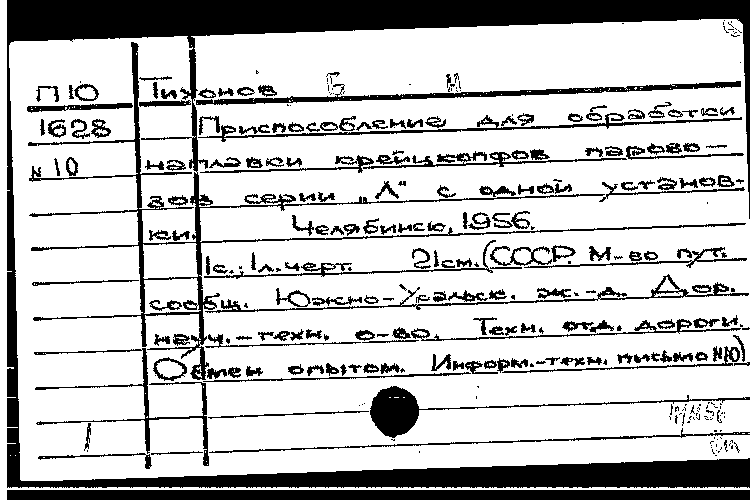 П 10 Тихонов Б М
1628 Приспособление для обработки
№ 10 наплавки крейцкопфов парово-
зов серии „Л" с одной установ-
ки. Челябинск, 1956.
1с.; 1л.черт. 21см. (СССР. М-во пут.
сообщ. Южно-Уральск. ж.-д. Дор.
науч.-техн. о-во. Техн. отд. дороги.
Обмен опытом. Информ.-техн. письмо №10)
1